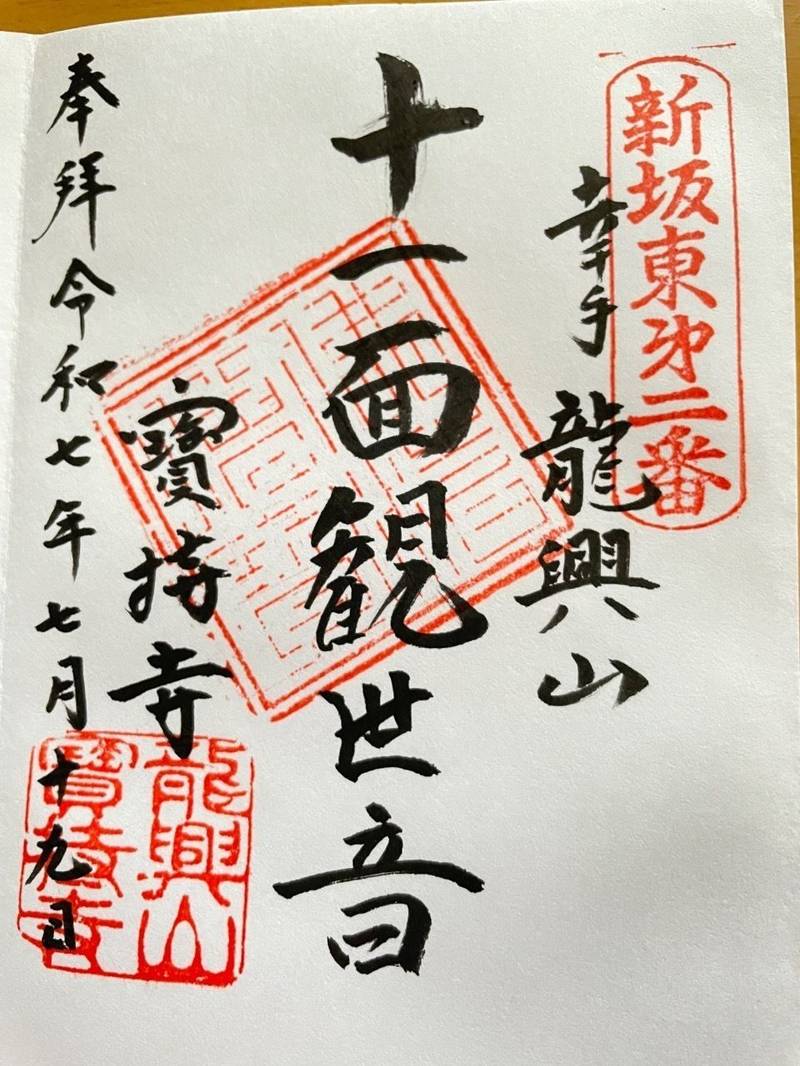 新坂東第二番
幸手 龍興山
十一面観世音
寳持寺
奉拝 令和七年七月十九日
龍興山
寳持寺